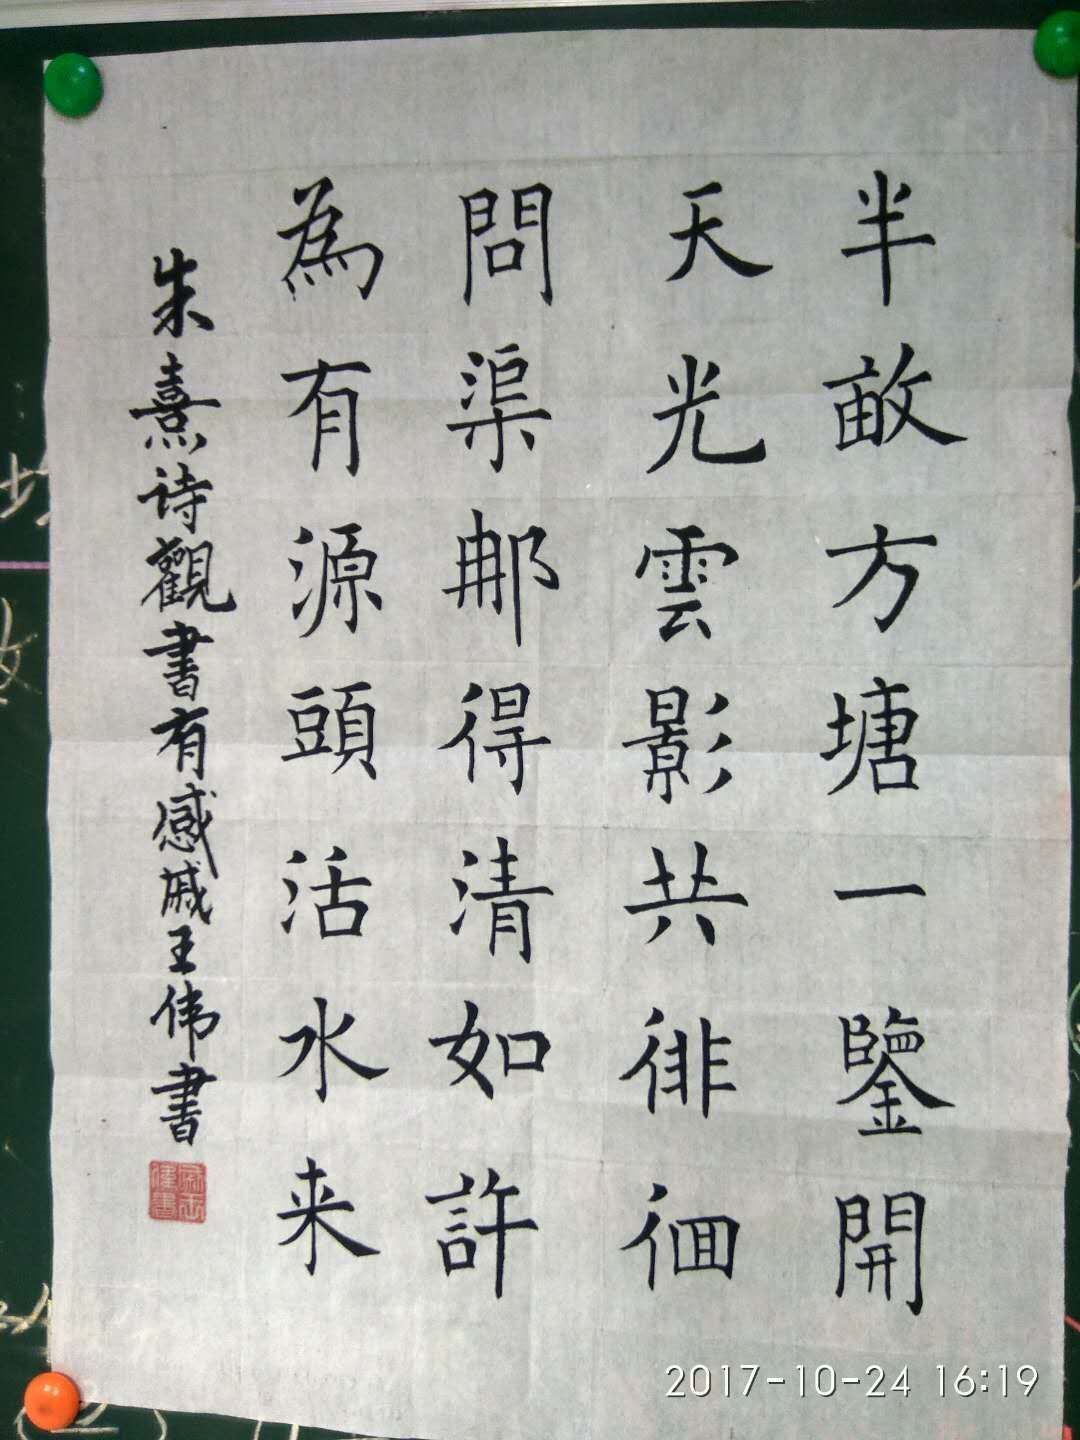 半畝方塘一鑒開
天光雲影共徘徊
問渠那得清如許
為有源頭活水来
朱熹诗觀書有感戚王伟書
2017-10-24 16:19